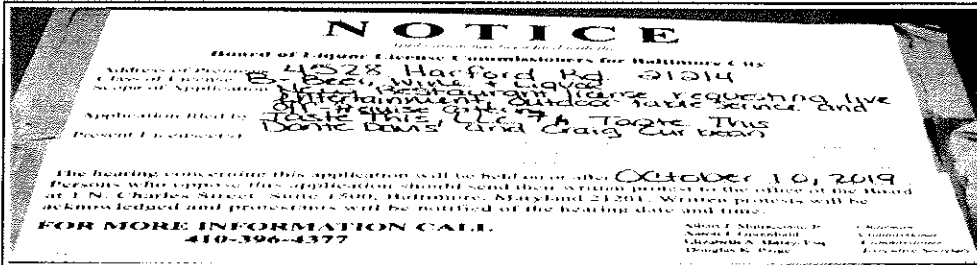 NOTICE
Application has been filed with the
Board of Liquor License Commissioners for Baltimore City
Address of Premises 4528 Harford Rd. 21214
Class of License B- Beer, Wine & Liquor
Scope of Application New Restaurant license requesting live
entertainment, outdoor table service and
Application filed by Taste This LLC T/A Taste This
Present Licensee(s) Dante Davis and Craig
The hearing concerning this application will be held on or after October 10, 2019
Persons who oppose this application should send their written protest to the office of the Board
at 1 N. Charles Street, Suite 1500, Baltimore, Maryland 21201. Written protests will be
acknowledged and protestants will be notified of the hearing date and time.
FOR MORE INFORMATION CALL
410-396-4377
Albert J. Chairman
Aaron J. Greenfield Commissioner
Elizabeth A. Hafey, Esq. Commissioner
Douglas K. Paige Executive Secretary